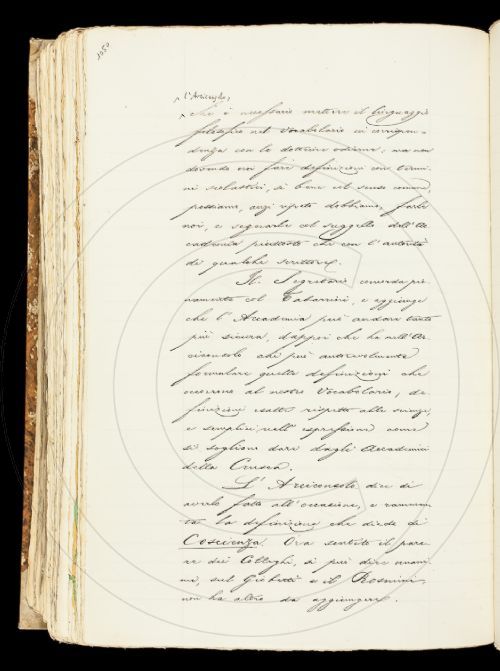 1050
l'Arciconsolo,
che è necessario mettere il linguaggio
filosofico nel Vocabolario in corrispon-
denza con le dottrine odierne; ma non
dovendo noi fare definizioni con termi-
ni scolastici, sì bene col senso comune,
possiamo, anzi dobbiamo, farle
noi, e segnarle col suggello dell'Ac-
cademia piuttosto che con l'autorità
di qualche scrittore.
Il Segretario concorda pie-
namente col Tabarrini, e aggiunge
che l'Accademia può andare tanto
più sicura, dappoi che ha nell'Ar-
ciconsolo chi può autorevolmente
formulare quelle definizioni che
occorrono al nostro Vocabolario, de-
finizioni esatte rispetto alla scienza,
e semplici nell'espressione come
si soglion dare dagli Accademici
della Crusca.
L'Arciconsolo dice di
averlo fatto all'occasione, e rammen-
ta la definizione che diede di
Coscienza. Ora sentito il pare-
re dei Colleghi, si può dire unani-
me, sul Gioberti e il Rosmini,
non ha altro da aggiungere.